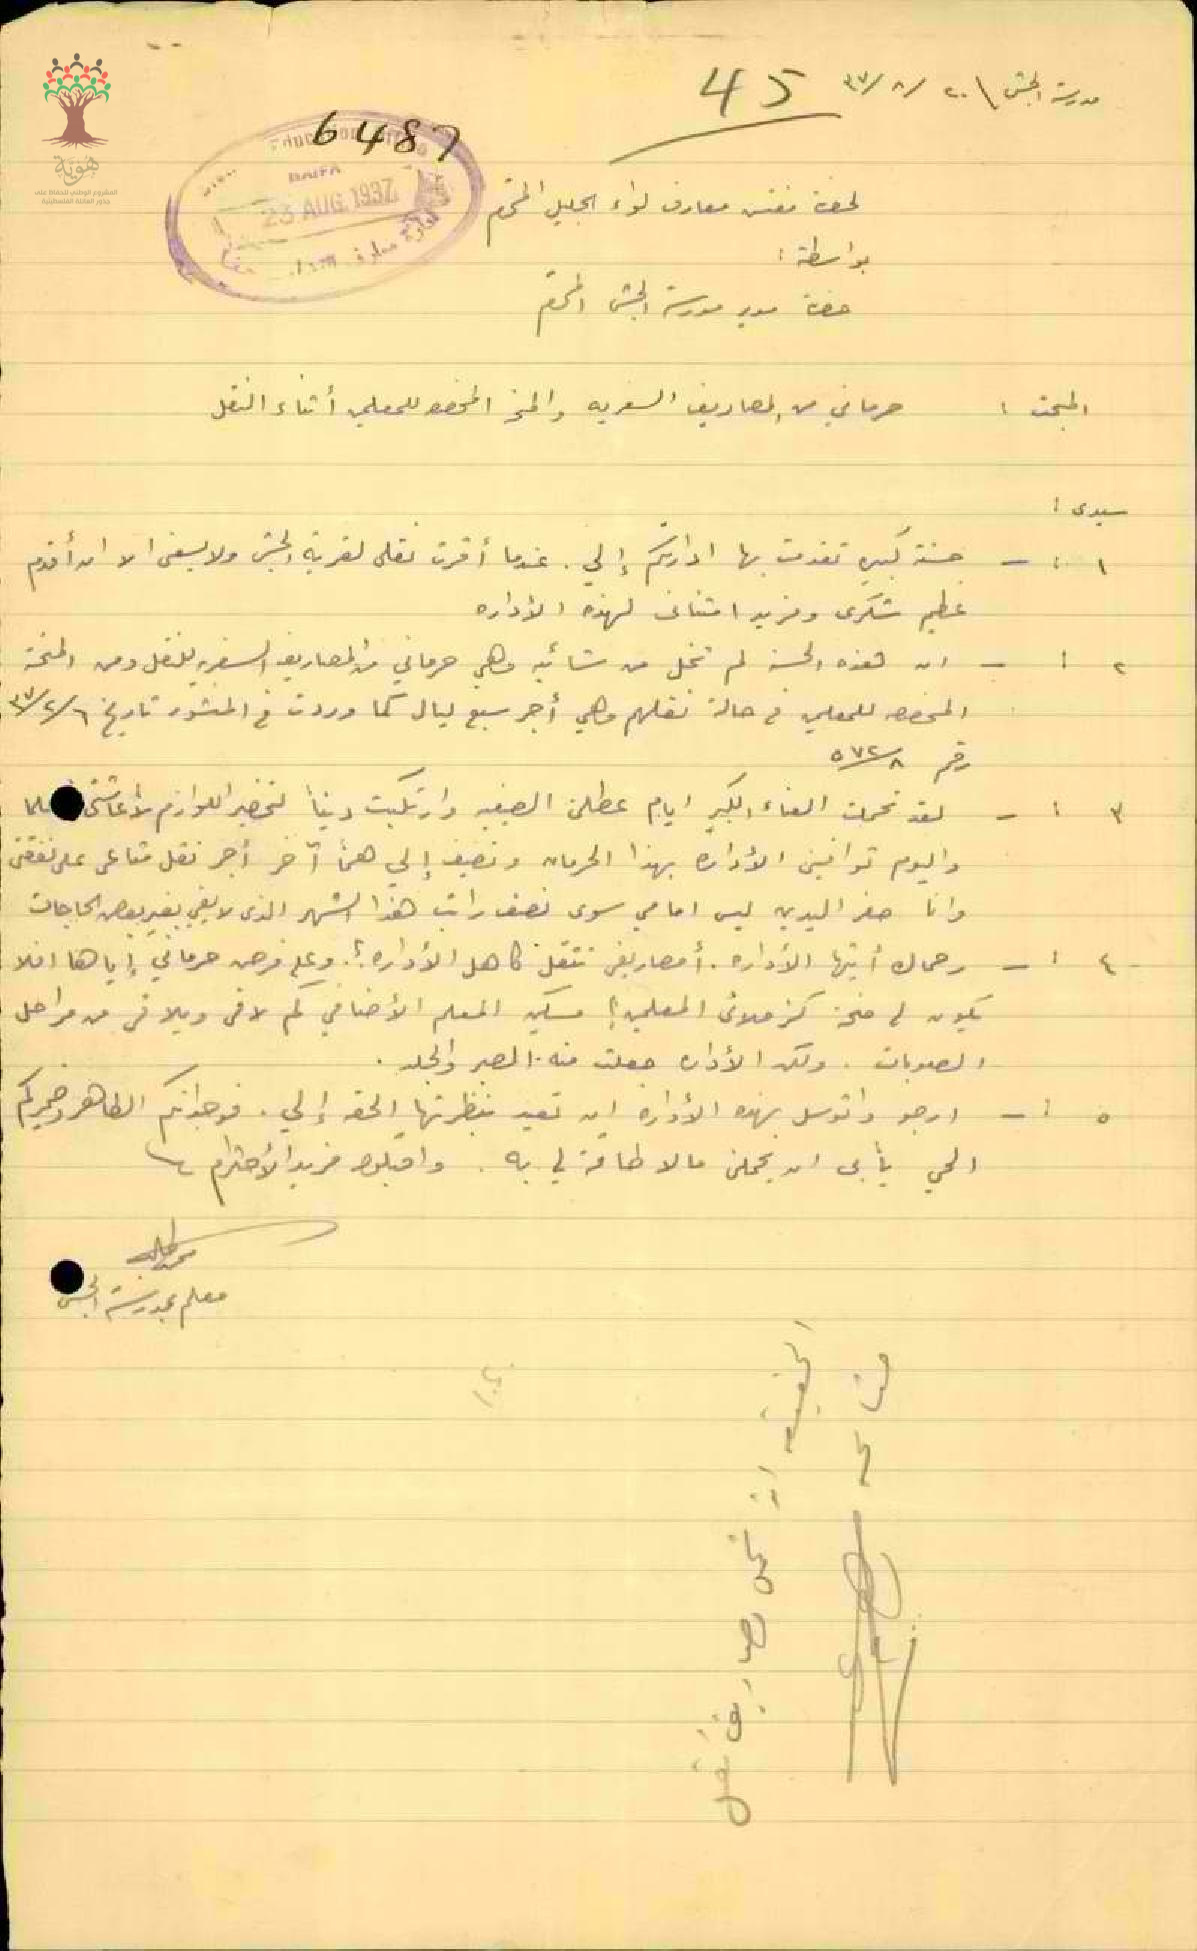 مدرسة الجش \ ٢٠ /٨/ ٣٧
45
6487
HAIFA
23 AUG 1937
هوية
المشروع الوطني للحفاظ على
جذور العائلة الفلسطينية
لحضرة مفتش معارف لواء الجليل المحترم
بواسطة :
حضرة مدير مدرسة الجش المحترم
المبحث : حرماني من المصاريف السفريه والمنح المخصصه للمعلمين أثناء النقل
سيدي :
١ :ــ حسنة كبيره تقدمت بها ادارتكم إلي . عندما أقرت نقلي لقرية الجش ولا يسعني الا ان أقدم
عظيم شكري ومزيد امتناني لهذه الأداره
٢ :ــ ان هذه الحسنه لم تخل من شائبه وهي حرماني من المصاريف السفريه للنقل ومن المنحة
المخصصه للمعلمين في حالة نقلهم وهي أجر سبع ليال كما وردت في المنشور تاريخ ٦/٢/٣٧
رقم ٥٧٢/٨
٣ :ــ لقد تحملت العناء الكبير ايام عطلتي الصيفيه وارتكبت ديناً لتحضير اللوازم لأعاشتي
واليوم توافيني الأداره بهذا الحرمان وتضيف إلي هماً آخر أجر نقل متاعي على نفقتي
وانا صفر اليدين ليس امامي سوى نصف راتب هذا الشهر الذي لا يفي بغير بعض الحاجات
٤ :ــ رحماك أيتها الأداره . أمصاريفي تثقل كاهل الأداره ؟. وعلى فرض حرماني إياها افلا
يكون لي منحة كزملائي المعلمين ؟ مسكين المعلم الأضافي كم لاقى ويلاقي من مراحل
الصعوبات . ولكن الأداره جعلت منه الصبر والجلد .
٥ :ــ ارجو واتوسل بهذه الأداره ان تعيد بنظرتها الحقه إلي . فوجدانكم الطاهر وضميركم
الحي يأبى ان يحملني مالا طاقة لي به . واقبلوا مزيد الأحترام
معلم بمدرسة الجش